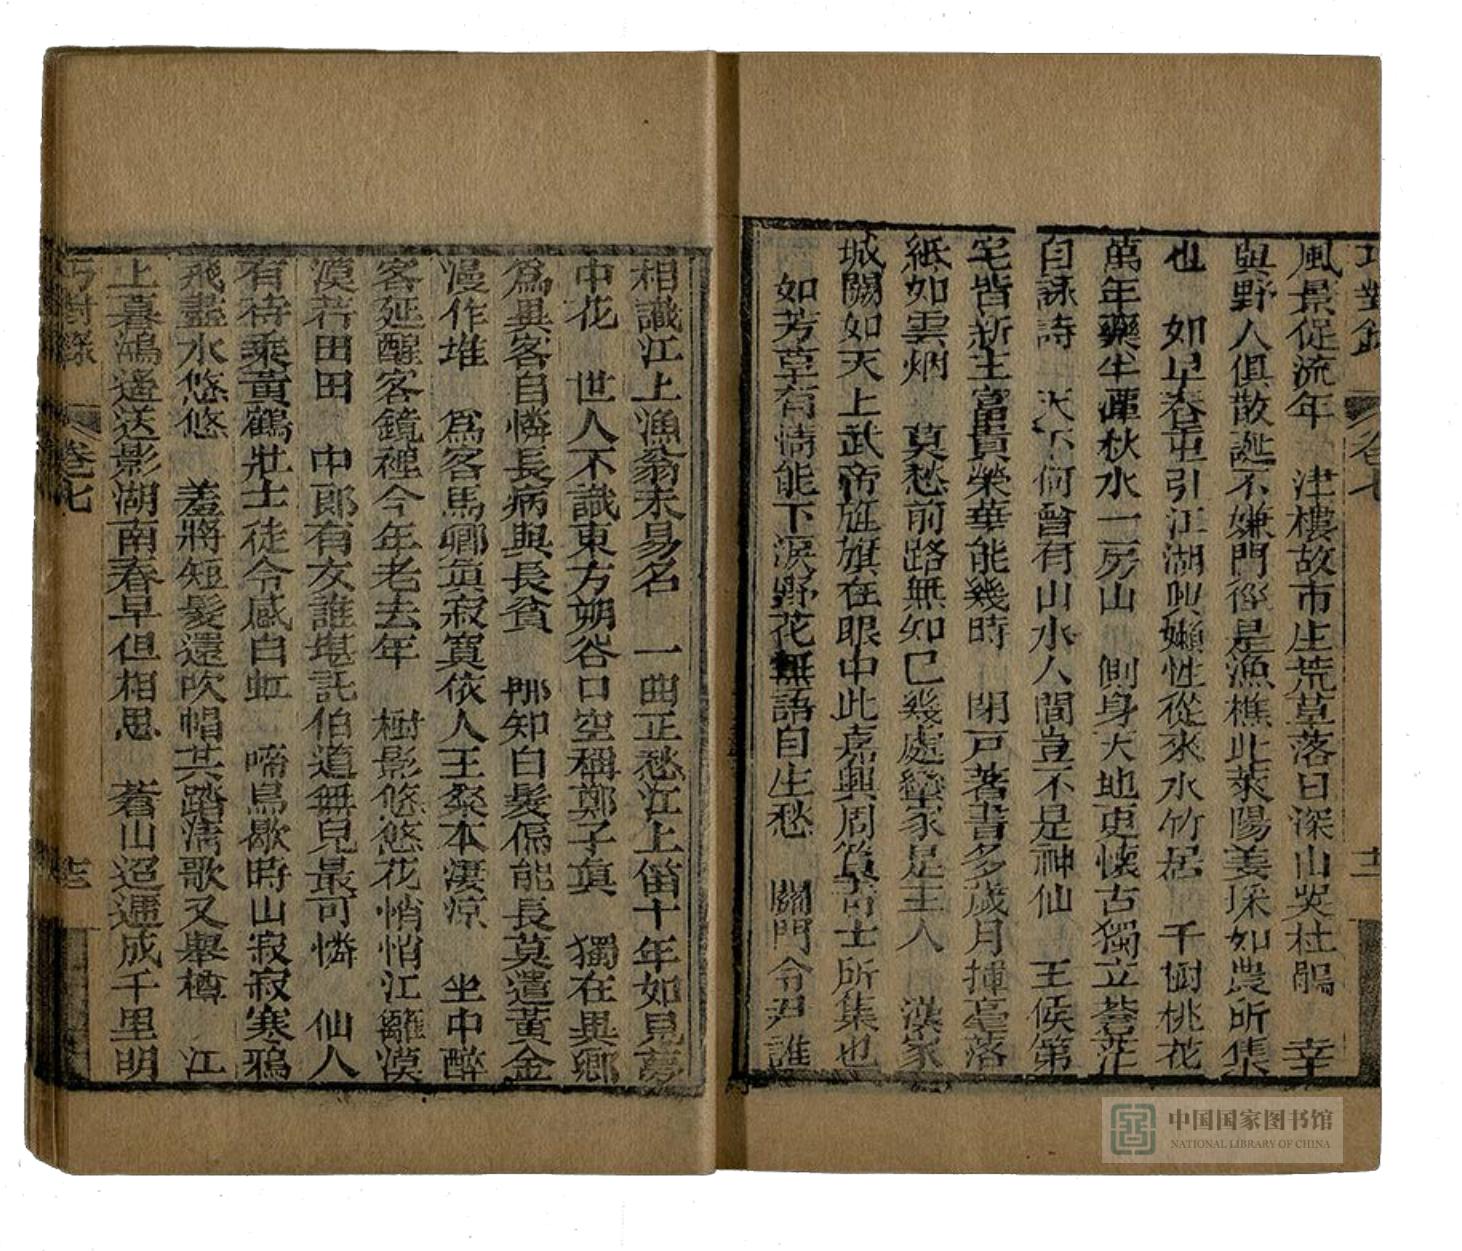 巧對錄 卷七 十二
風景促流年 津樓故市生荒草落日深山哭杜鵑 幸
與野人俱散誕不嫌門徑是漁樵此萊陽姜垛如農所集
也 如早春重引江湖興嬾性從來水竹居 千樹桃花
萬年藥半潭秋水一房山 側身天地更懷古獨立蒼茫
自詠詩 天下何曾有山水人間豈不是神仙 王侯第
宅皆新主富貴榮華能幾時 閉戸著書多歲月揮毫落
紙如雲烟 莫愁前路無知已幾處蠻家是主人 漢家
城闕如天上武帝旌旗在眼中此嘉興周篔青士所集也
如芳草有情能下淚野花無語自生愁 關門令尹誰
相識江上漁翁未易名 一曲正愁江上笛十年如見夢
中花 世人不識東方朔谷口空稱鄭子眞 獨在異鄉
爲異客自憐長病與長貧 那知白髮偏能長莫遣黃金
漫作堆 爲客馬卿眞寂寞依人王粲本淒涼 坐中醉
客延醒客鏡裡今年老去年 樹影悠悠花悄悄江籬漠
漠荇田田 中郎有女誰堪託伯道無兒最可憐 仙人
有待乘黃鶴壯士徒令感白虹 啼鳥歇時山寂寂寒鴉
飛盡水悠悠 羞將短髮還吹帽其踏清歌又舉樽 江
上暮鴻遙送影湖南春早但相思 蒼山迢遞成千里明
巧對錄 卷七 十三
中国国家图书馆
NATIONAL LIBRARY OF CHINA